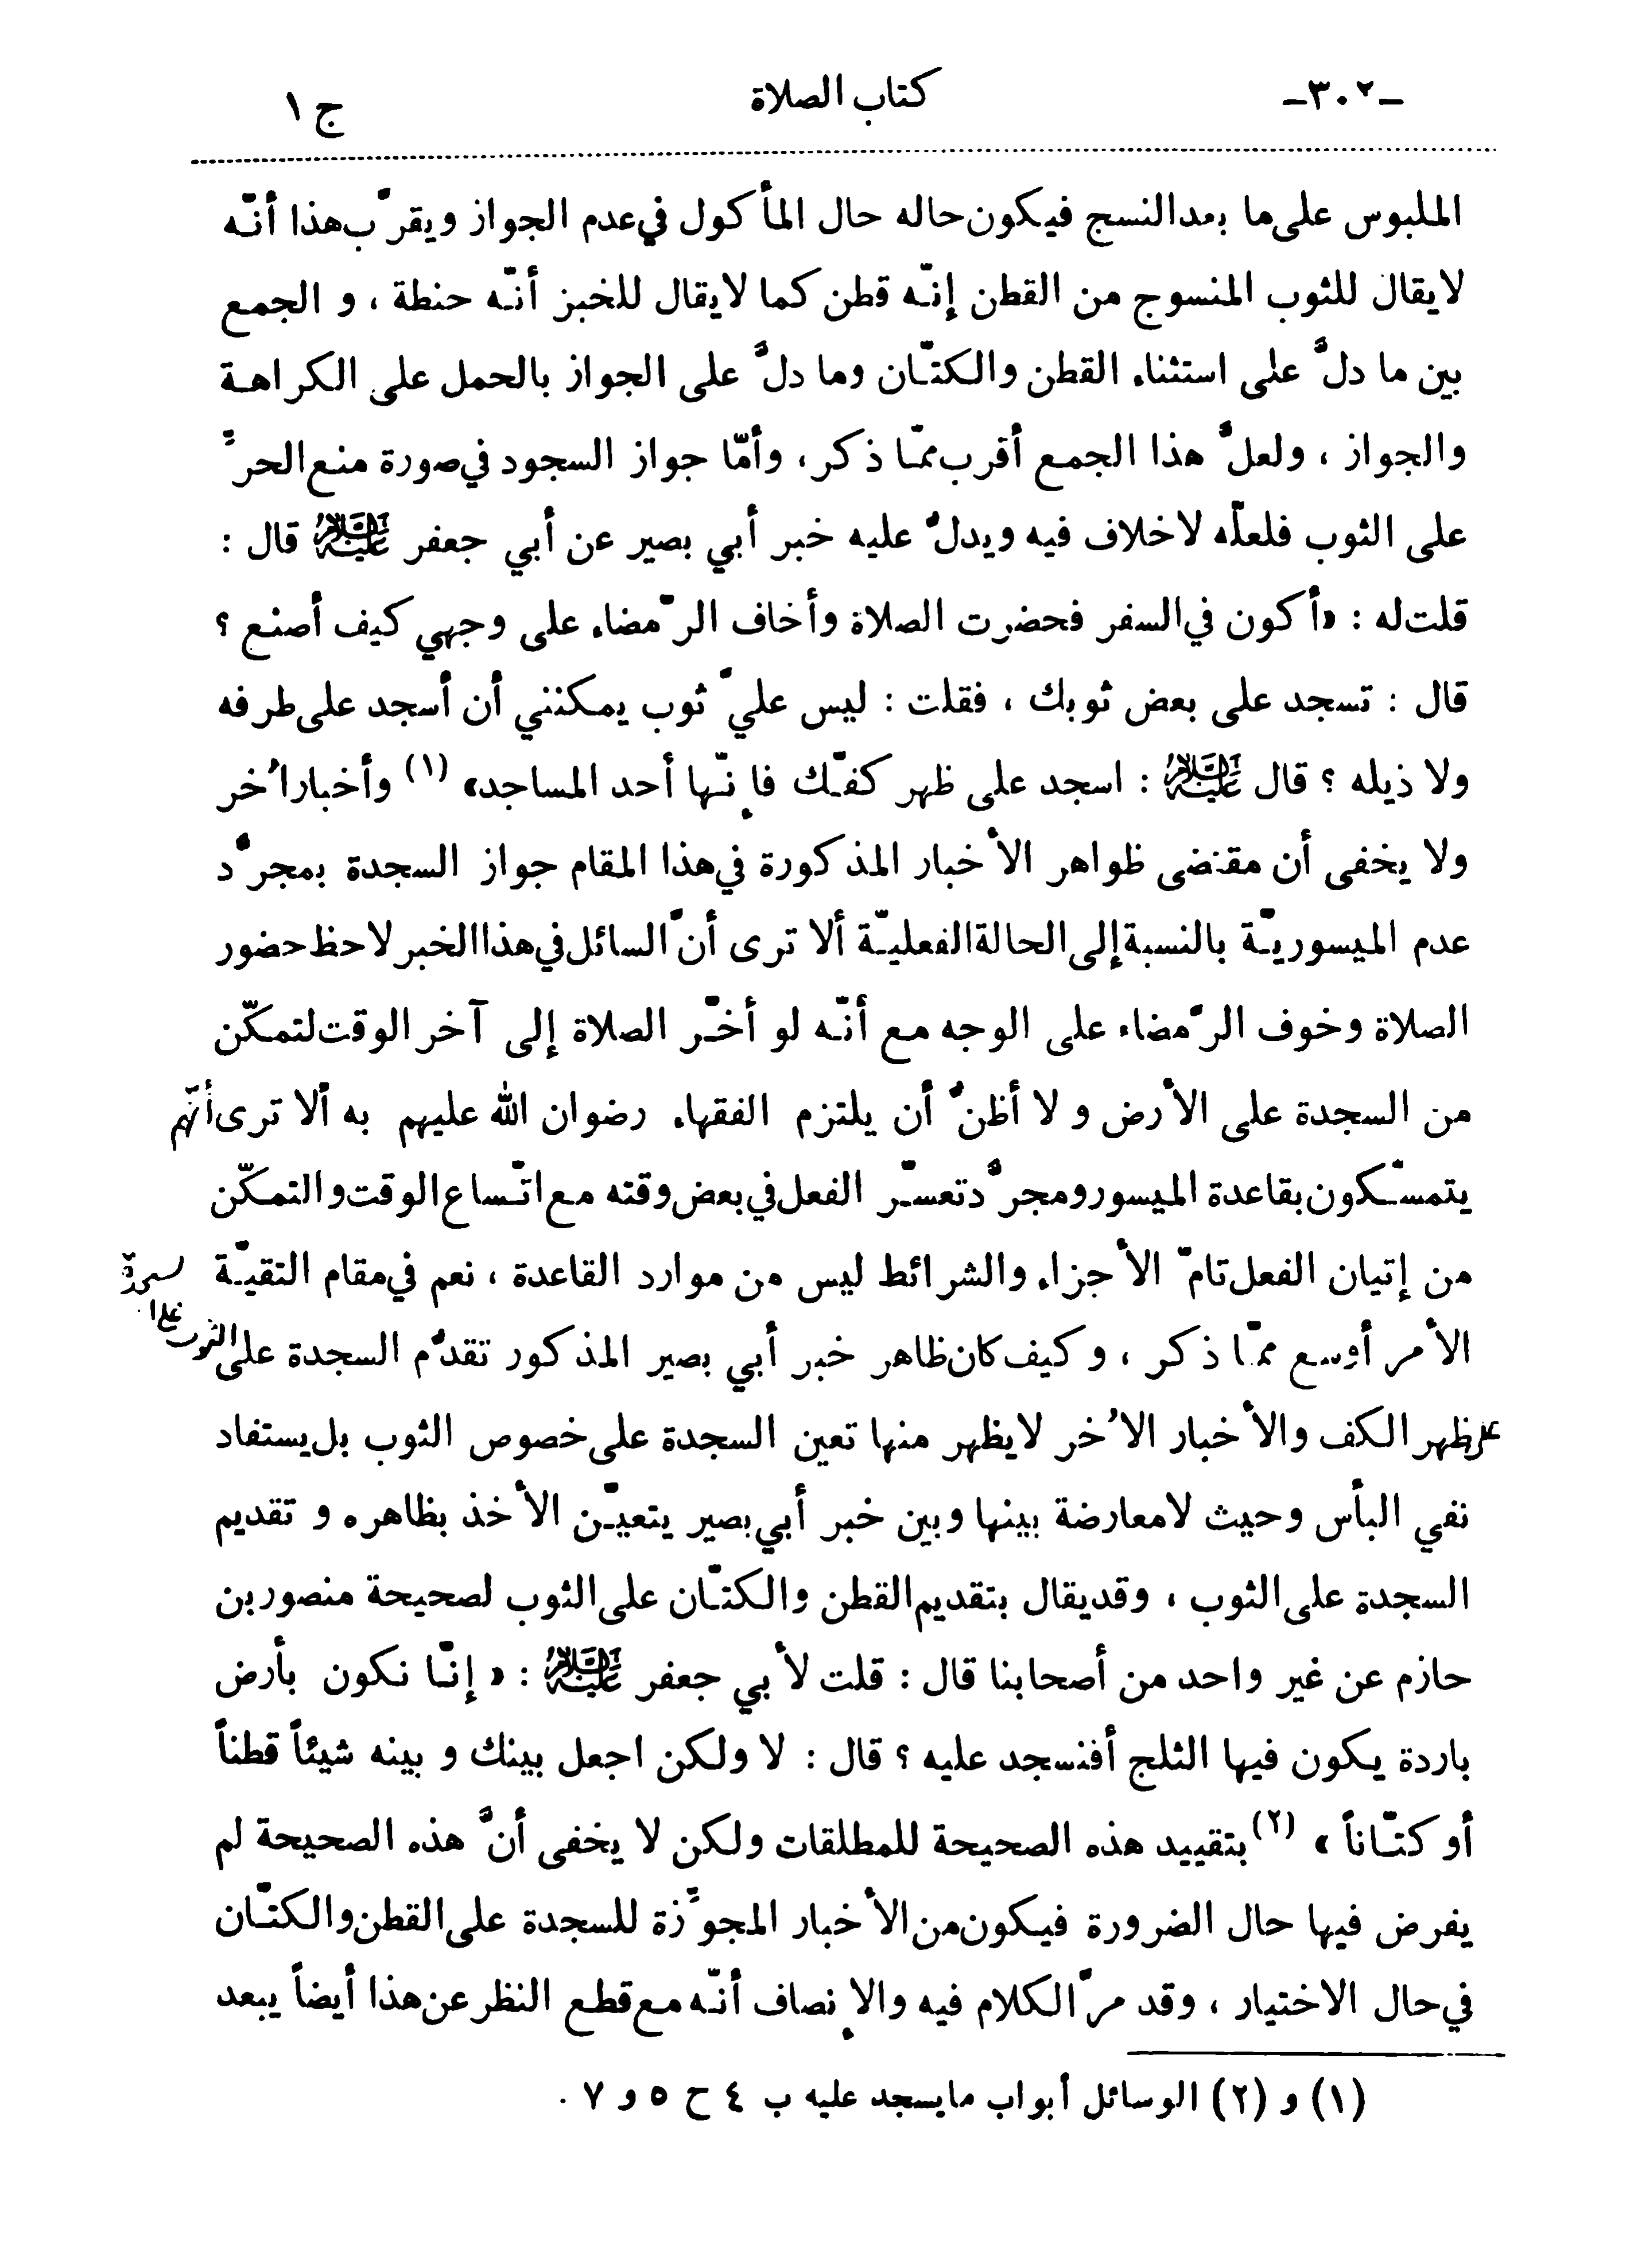 -٣٠٢-
كتاب الصلاة
ج ١
الملبوس على ما بعد النسج فيكون حاله حال المأكول في عدم الجواز ويقرّب هذا أنّه
لا يقال للثوب المنسوج من القطن إنّه قطن كما لا يقال للخبز أنّه حنطة ، و الجمع
بين ما دلَّ على استثناء القطن والكتّان وما دلَّ على الجواز بالحمل على الكراهة
والجواز ، ولعلَّ هذا الجمع أقرب ممّا ذكر، وأمّا جواز السجود في صورة منع الحرِّ
على الثوب فلعلّه لا خلاف فيه ويدلُّ عليه خبر أبي بصير عن أبي جعفر عليه السلام قال :
قلت له : «أكون في السفر فحضرت الصلاة وأخاف الرّمضاء على وجهي كيف أصنع ؟
قال : تسجد على بعض ثوبك ، فقلت : ليس عليّ ثوب يمكنني أن أسجد على طرفه
ولا ذيله ؟ قال عليه السلام : اسجد على ظهر كفّك فإنّها أحد المساجد» (١) وأخبار اُخر
ولا يخفى أن مقتضى ظواهر الأخبار المذكورة في هذا المقام جواز السجدة بمجرَّد
عدم الميسوريّة بالنسبة إلى الحالة الفعليّة ألا ترى أنَّ السائل في هذا الخبر لاحظ حضور
الصلاة وخوف الرَّمضاء على الوجه مع أنّه لو أخّر الصلاة إلى آخر الوقت لتمكّن
من السجدة على الأرض و لا أظنُّ أن يلتزم الفقهاء رضوان الله عليهم به ألا ترى أنّهم
يتمسّكون بقاعدة الميسور ومجرَّد تعسّر الفعل في بعض وقته مع اتّساع الوقت والتمكّن
من إتيان الفعل تامّ الأجزاء والشرائط ليس من موارد القاعدة ، نعم في مقام التقيّة
الأمر أوسع ممّا ذكر ، و كيف كان ظاهر خبر أبي بصير المذكور تقدُّم السجدة على الثوب
على ظهر الكف والأخبار الاُخر لا يظهر منها تعين السجدة على خصوص الثوب بل يستفاد
نفي البأس وحيث لا معارضة بينها وبين خبر أبي بصير يتعيّن الأخذ بظاهره و تقديم
السجدة على الثوب ، وقد يقال بتقديم القطن والكتّان على الثوب لصحيحة منصور بن
حازم عن غير واحد من أصحابنا قال : قلت لأبي جعفر عليه السلام : « إنّا نكون بأرض
باردة يكون فيها الثلج أفنسجد عليه ؟ قال : لا ولكن اجعل بينك و بينه شيئاً قطناً
أو كتّاناً » (٢) بتقييد هذه الصحيحة للمطلقات ولكن لا يخفى أنَّ هذه الصحيحة لم
يفرض فيها حال الضرورة فيكون من الأخبار المجوِّزة للسجدة على القطن والكتّان
في حال الاختيار ، وقد مرّ الكلام فيه والإنصاف أنّه مع قطع النظر عن هذا أيضاً يبعد
(١) و (٢) الوسائل أبواب ما يسجد عليه ب ٤ ح ٥ و ٧ .